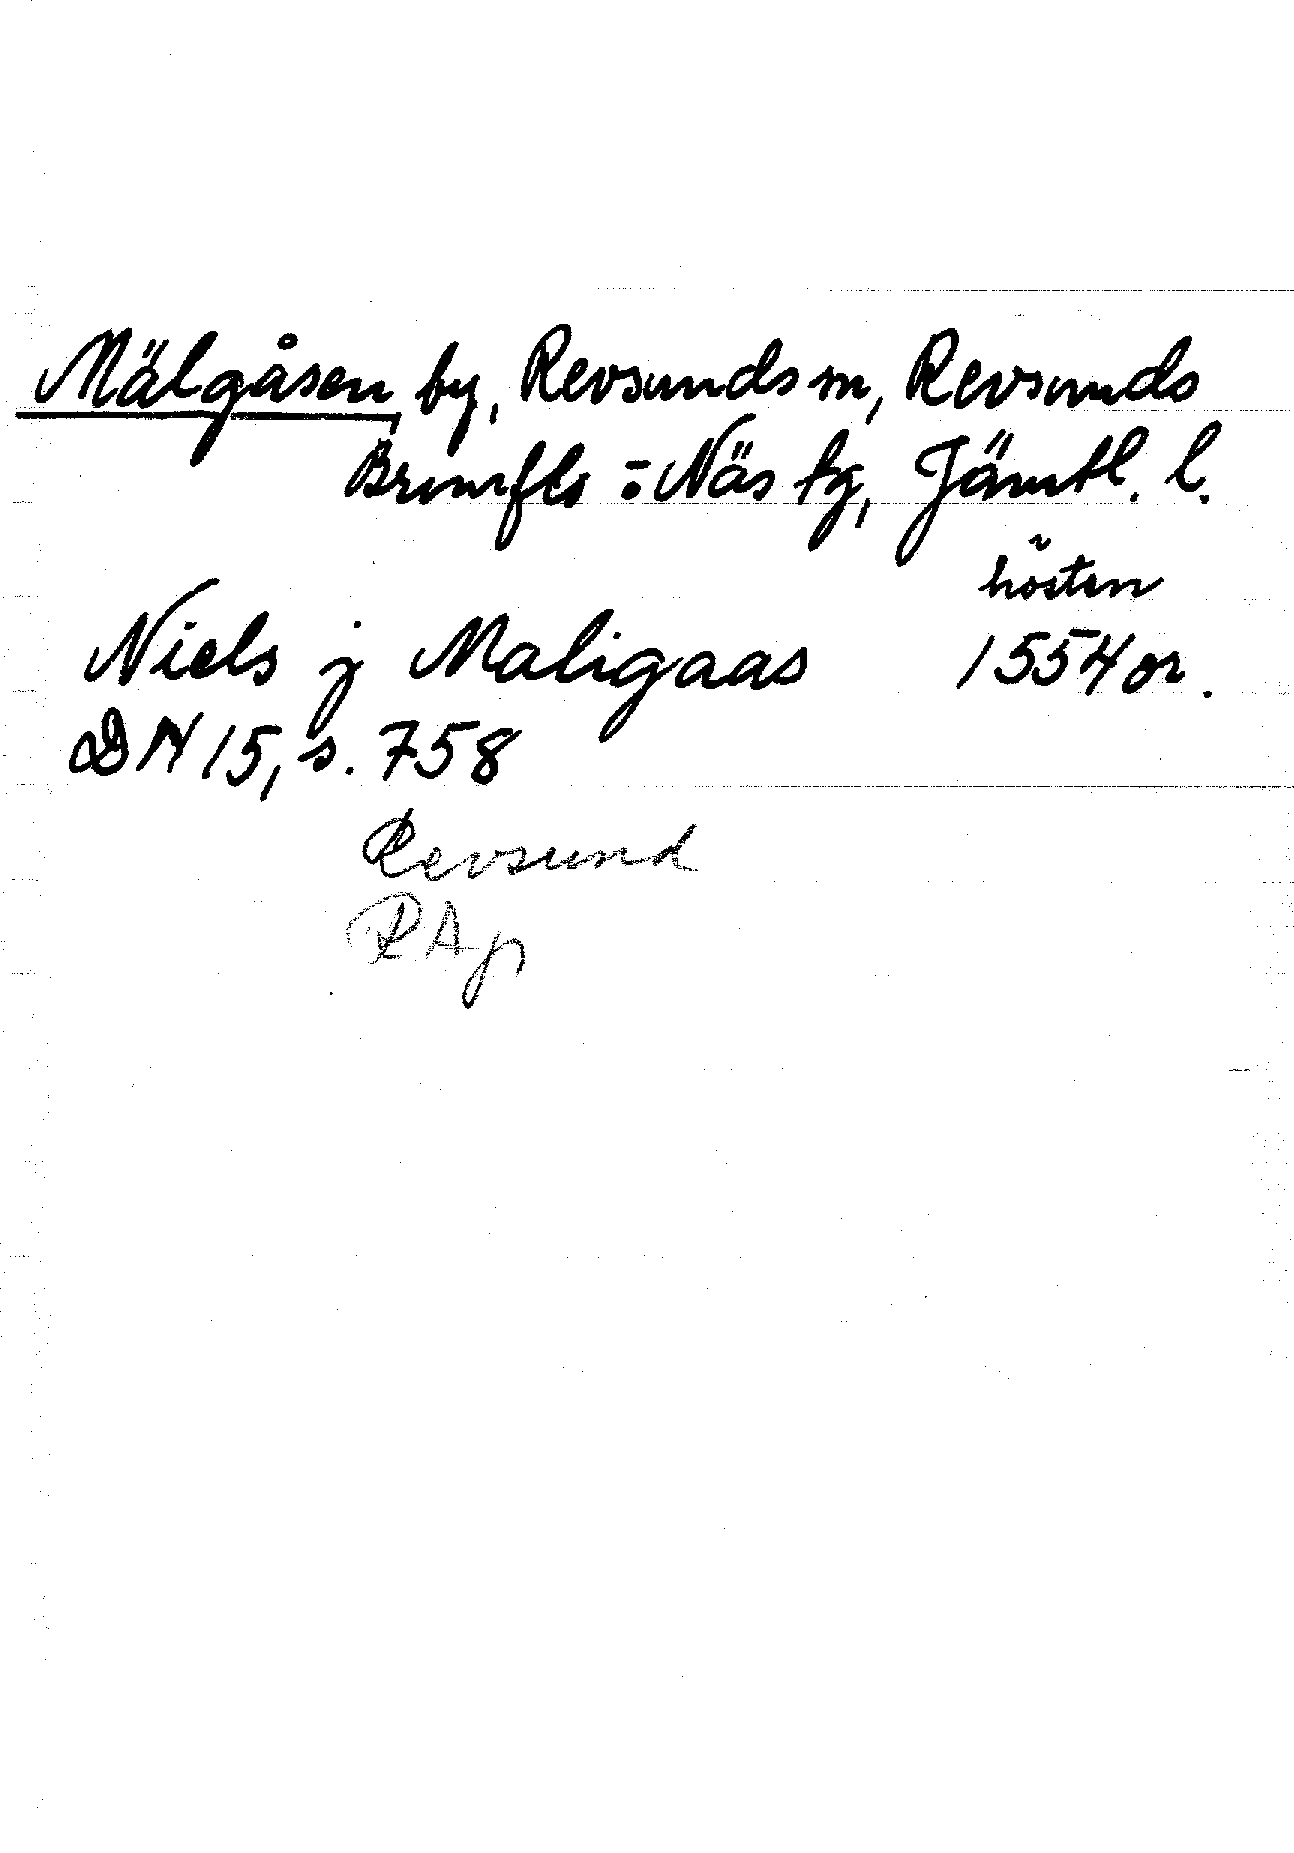 Mälgåsen by, Revsunds sn, Revsunds
Brunflo o Näs tg, Jämtl. l.
hösten
Niels j Maligaas 1554 or.
DN 15, s. 758
Revsund
RAp